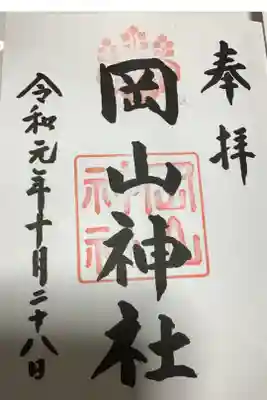 奉拝
岡山神社
令和元年十月二十八日